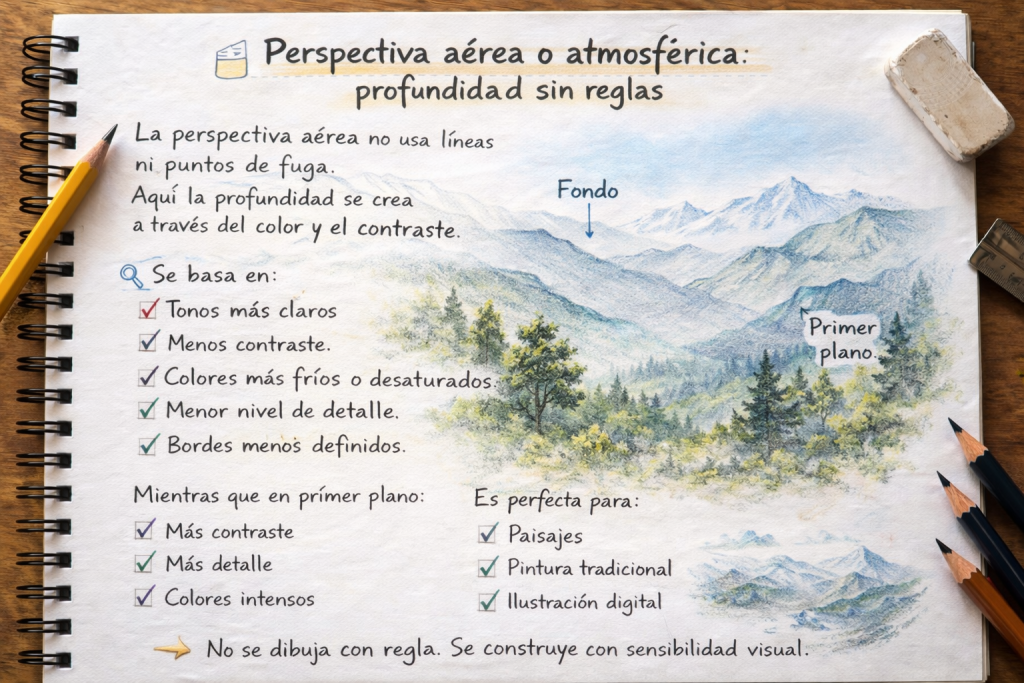 Perspectiva aérea o atmosférica:
profundidad sin reglas
La perspectiva aérea no usa líneas
ni puntos de fuga.
Aquí la profundidad se crea
a través del color y el contraste.
Se basa en:
Tonos más claros
Menos contraste.
Colores más fríos o desaturados.
Menor nivel de detalle.
Bordes menos definidos.
Fondo
Primer
plano.
Mientras que en prímer plano:
Más contraste
Más detalle
Colores intensos
Es perfecta para:
Paisajes
Pintura tradicional
Ilustración digital
No se dibuja con regla. Se construye con sensibilidad visual.